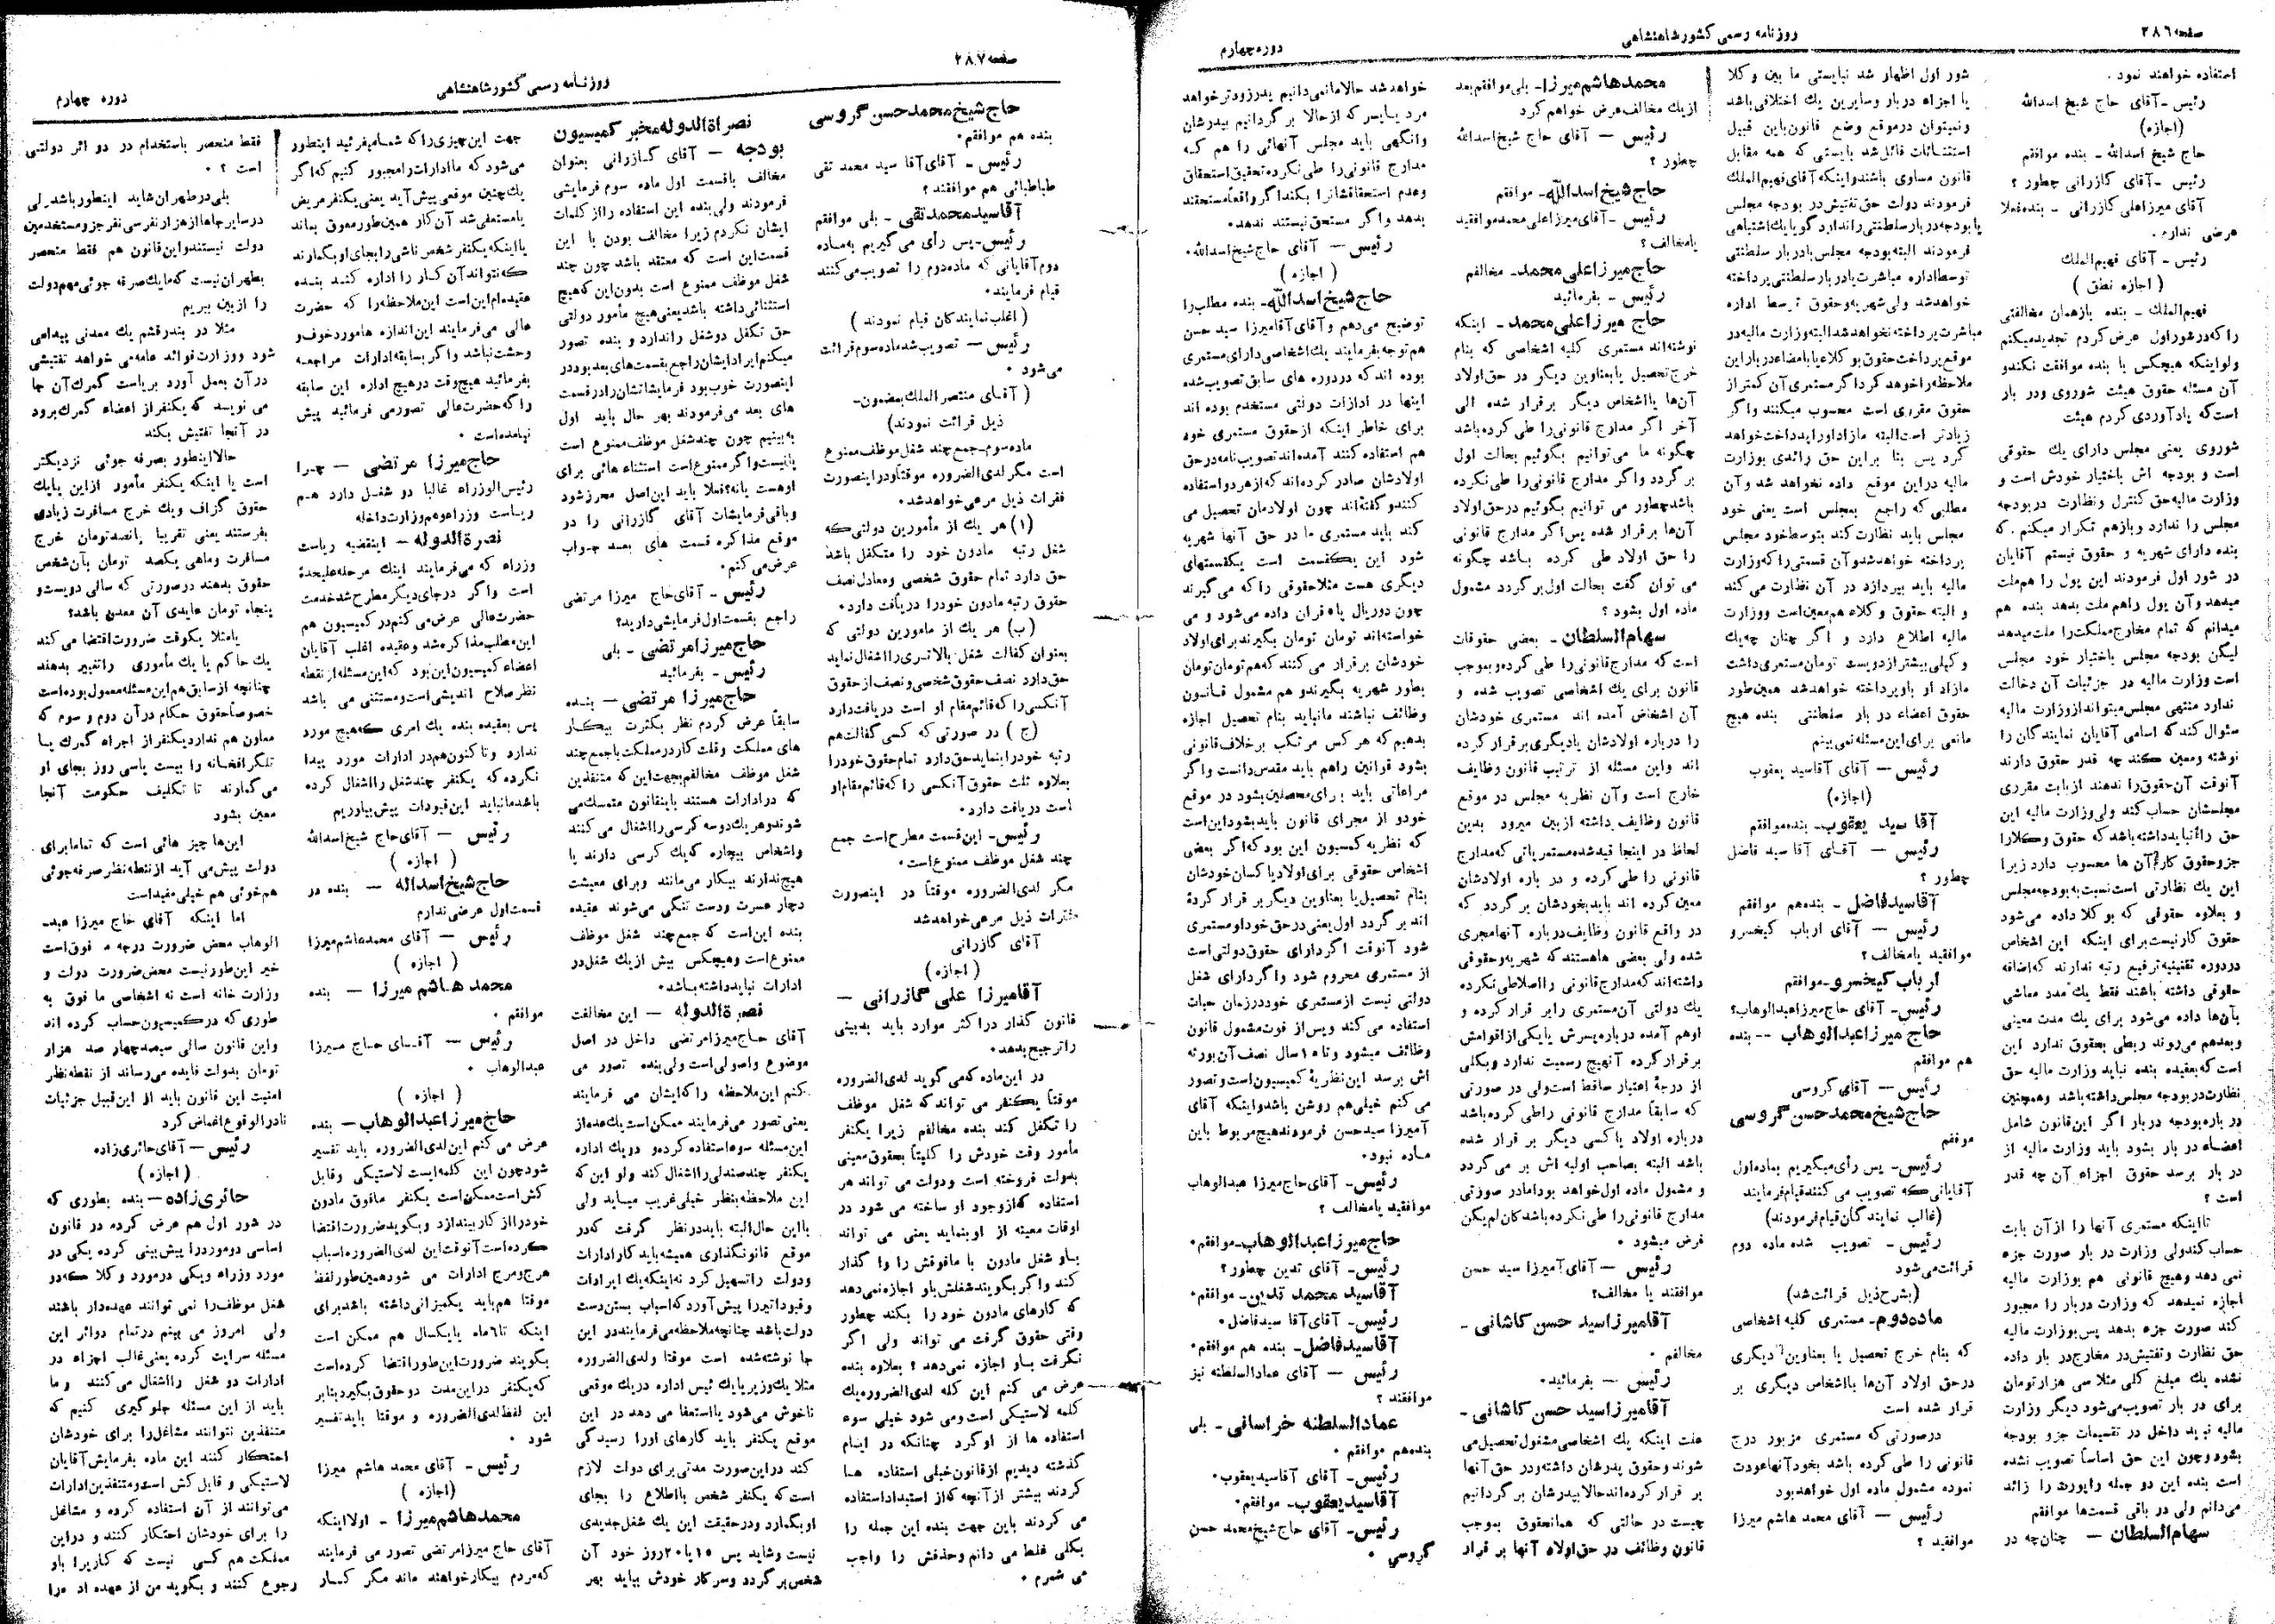 صفحه ۲۸۶
روزنامه رسمی کشور شاهنشاهی
دوره چهارم
استفاده خواهند نمود .
رئیس ـ آقای حاج شیخ اسدالله
(اجازه)
حاج شیخ اسدالله ـ بنده موافقم
رئیس ـ آقای کازرانی چطور ؟
آقای میرزا علی کازرانی ـ بنده فعلا
عرضی ندارم .
رئیس ـ آقای فهیم الملک
( اجازه نطق )
فهیم الملک ـ بنده بازهمان مخالفتی
را که در شور اول عرض کردم تجدید میکنم
ولو اینکه هیچکس با بنده موافقت نکند و
آن مسئله حقوق هیئت شوروی و در بار
است که یاد آوردی کردم هیئت
شوروی یعنی مجلس دارای یك حقوقی
است و بودجه اش باختیار خودش است و
وزارت مالیه حق کنترل و نظارت در بودجه
مجلس را ندارد و بازهم تکرار میکنم . که
بنده دارای شهریه و حقوق نیستم آقایان
در شور اول فرمودند این پول را هم ملت
میدهد و آن پول را هم ملت بدهد بنده هم
میدانم که تمام مخارج مملکت را ملت میدهد
لیکن بودجه مجلس باختیار خود مجلس
است وزارت مالیه در جزئیات آن دخالت
ندارد منتهی مجلس میتواند از وزارت مالیه
سئوال کند که اسامی آقایان نمایندگان را
نوشته و معین کند چه قدر حقوق دارند
آنوقت آن حقوق را ندهند از بابت مقرری
مجلسشان حساب کند ولی وزارت مالیه این
حق را نباید داشته باشد که حقوق وکلا را
جزو حقوق کارم آن ها محسوب دارد زیرا
این یك نظارتی است نسبت به بودجه مجلس
و بعلاوه حقوقی که بوکلا داده می شود
حقوق کار نیست برای اینکه این اشخاص
در دوره تقنینیه ترفیع رتبه ندارند که اضافه
حقوقی داشته باشند فقط یك مدد معاشی
بآن ها داده می شود برای یك مدت معینی
و بعد هم می روند ربطی بحقوق ندارد این
است که بعقیده بنده نباید وزارت مالیه حق
نظارت در بودجه مجلس داشته باشد وهمچنین
در باره بودجه دربار اگر این قانون شامل
اعضاء در بار بشود باید وزارت مالیه از
در بار برسد حقوق اجزاء آن چه قدر
است ؟
تا اینکه مستمری آنها را از آن بابت
حساب کند ولی وزارت در بار صورت جزء
نمی دهد و هیچ قانونی هم بوزارت مالیه
اجازه نمیدهد که وزارت دربار را مجبور
کند صورت جزء بدهد پس بوزارت مالیه
حق نظارت و تفتیش در مخارج در بار داده
نشده یك مبلغ کلی مثلا سی هزار تومان
برای در بار تصویب می شود دیگر وزارت
مالیه نباید داخل در تقسیمات جزو بودجه
بشود و چون این حق اساساً تصویب نشده
است بنده این دو جمله را پورت را زائد
می دانم ولی در باقی قسمت ها موافقم
سهام السلطان ـ چنان چه در
شور اول اظهار شد نبایستی ما بین وکلا
یا اجزاء دربار و سایرین یك اختلافی باشد
ونمیتوان در موقع وضع قانون باین قبیل
استثنائات قائل شد بایستی که همه مقابل
قانون مساوی باشند و اینکه آقای فهیم الملك
فرمودند دولت حق تفتیش در بودجه مجلس
یا بودجه دربار سلطنتی را ندارد گویا یك اشتباهی
فرمودند البته بودجه مجلس یا دربار سلطنتی
توسط اداره مباشرت یا دربار سلطنتی پرداخته
خواهد شد ولی شهریه وحقوق توسط اداره
مباشرت پرداخته نخواهد شد البته وزارت مالیه در
موقع پرداخت حقوق بوکلاء یا باعضاء دربار این
ملاحظه را خواهد کرد اگر مستمری آن کمتر از
حقوق مقرری است محسوب میکنند واگر
زیادتر است البته مازاد او را پرداخت خواهد
کرد پس بنا براین حق زائدی بوزارت
مالیه در این موقع داده نخواهد شد و آن
مطلبی که راجع بمجلس است یعنی خود
مجلس باید نظارت کند بتوسط خود مجلس
پرداخته خواهد شد و آن قسمتی را که وزارت
مالیه باید بپردازد در آن نظارت می کند
و البته حقوق وکلاء هم معین است ووزارت
مالیه اطلاع دارد و اگر چنان چه یك
وکیلی بیشتر از دویست تومان مستمری داشت
مازاد او باو پرداخته خواهد شد همین طور
حقوق اعضاء در بار سلطنتی بنده هیچ
مانعی برای این مسئله نمی بینم
رئیس ـ آقای آقا سید یعقوب
(اجازه)
آقا سید یعقوب ـ بنده موافقم
رئیس ـ آقای آقا سید فاضل
چطور ؟
آقا سید فاضل ـ بنده هم موافقم
رئیس ـ آقای ارباب کیخسرو
موافقید یا مخالف ؟
ارباب کیخسرو ـ موافقم
رئیس ـ آقای حاج میرزا عبدالوهاب؟
حاج میرزا عبدالوهاب -- بنده
هم موافقم
رئیس ـ آقای گروسی
حاج شیخ محمد حسن گروسی
موفقم
رئیس ـ پس رأی میگیریم بماده اول
آقایانی که تصویب می کنند قیام فرمایند
(غالب نمایندگان قیام فرمودند)
رئیس ـ تصویب شده ماده دوم
قرائت می شود
(بشرح ذیل قرائت شد)
ماده دوم ـ مستمری کلیه اشخاصی
که بنام خرج تحصیل یا بعناوین دیگری
در حق اولاد آن ها یا اشخاص دیگری بر
قرار شده است
در صورتی که مستمری مزبور درج
قانونی را طی کرده باشد بخود آنها عودت
نموده مشمول ماده اول خواهد بود
رئیس ـ آقای محمد هاشم میرزا
موافقید ؟
محمد هاشم میرزا ـ بلی موافقم بعد
از یك مخالف عرض خواهم کرد
رئیس ـ آقای حاج شیخ اسدالله
چطور ؟
حاج شیخ اسدالله ـ موافقم
رئیس ـ آقای میرزا علی محمد موافقید
یا مخالف ؟
حاج میرزا علی محمد ـ مخالفم
رئیس ـ بفرمائید
حاج میرزا علی محمد ـ اینکه
نوشته اند مستمری کلیه اشخاصی که بنام
خرج تحصیل یا بعناوین دیگر در حق اولاد
آن ها یا اشخاص دیگر برقرار شده الی
آخر اگر مدارج قانونی را طی کرده باشد
چگونه ما می توانیم بگوئیم بحالت اول
بر گردد و اگر مدارج قانونی را طی نکرده
باشد چطور می توانیم بگوئیم در حق اولاد
آن ها برقرار شده پس اگر مدارج قانونی
را حق اولاد طی کرده باشد چگونه
می توان گفت بحالت اول بر گردد مشمول
ماده اول بشود ؟
سهام السلطان ـ بعضی حقوقات
است که مدارج قانونی را طی کرده و بموجب
قانون برای یك اشخاصی تصویب شده و
آن اشخاص آمده اند مستمری خودشان
را درباره اولادشان یا دیگری بر قرار کرده
اند واین مسئله از ترتیب قانون وظایف
خارج است و آن نظریه مجلس در موقع
قانون وظایف داشته از بین میرود بدین
لحاظ در اینجا قید شده مستمریاتی که مدارج
قانونی را طی کرده و در باره اولادشان
معین کرده اند باید بخودشان بر گردد که
در واقع قانون وظایف در باره آنها مجری
شده ولی بعضی ها هستند که شهریه وحقوقی
داشته اند که مدارج قانونی را اصلا طی نکرده
یك دولتی آن مستمری را بر قرار کرده و
او هم آمده در باره پسرش یا یکی از اقوامش
برقرار کرده آنهیچ رسمیت ندارد و بکلی
از درجهٔ اعتبار ساقط است ولی در صورتی
که سابقاً مدارج قانونی را طی کرده باشد
درباره اولاد یا کسی دیگر بر قرار شده
باشد البته بصاحب اولیه اش بر می گردد
و مشمول ماده اول خواهد بود اما در صورتی
مدارج قانونی را طی نکرده باشد کان لم یکن
فرض میشود .
رئیس ـ آقای آمیرزا سید حسن
موافقند یا مخالف؟
آقا میرزا سید حسن کاشانی ـ
مخالفم .
رئیس ـ بفرمائید.
آقا میرزا سید حسن کاشانی ـ
علت اینکه یك اشخاصی مشغول تحصیل می
شوند وحقوق پدرشان داشته ودر حق آنها
بر قرار کرده اند حالا بپدرشان بر گردانیم
چیست در حالتی که همان حقوق بموجب
قانون وظائف در حق اولاد آنها بر قرار
خواهد شد حالا ما نمی دانیم پدر زودتر خواهد
مرد یا پسر که از حالا بر گردانیم بپدرشان
وانگهی باید مجلس آنهائی را هم که
مدارج قانونی را طی نکرده تحقیق استحقاق
وعدم استحقاقشان را بکند اگر واقعاً مستحقند
بدهد و اگر مستحق نیستند ندهد.
رئیس ـ آقای حاج شیخ اسدالله.
( اجازه )
حاج شیخ اسدالله ـ بنده مطلب را
توضیح می دهم و آقای آقا میرزا سید حسن
هم توجه بفرمایند یك اشخاصی دارای مستمری
بوده اند که در دوره های سابق تصویب شده
اینها در ادارات دولتی مستخدم بوده اند
برای خاطر اینکه از حقوق مستمری خود
هم استفاده کنند آمده اند تصویب نامه در حق
اولادشان صادر کرده اند که از هر دو استفاده
کنند و گفته اند چون اولادمان تحصیل می
کند باید مستمری ما در حق آنها شهریه
شود این یكقسمت است یكقسمتهای
دیگری هست مثلا حقوقی را که می گیرند
چون دو ریال یا ه قران داده می شود و می
خواسته اند تومان تومان بگیرند برای اولاد
خودشان برقرار می کنند که هم تومان تومان
بطور شهریه بگیرند و هم مشمول قانون
وظائف نباشند ما نباید بنام تحصیل اجازه
بدهیم که هر کس مرتکب بر خلاف قانونی
بشود قوانین را هم باید مقدس دانست واگر
مراعاتی باید برای محصلین بشود در موقع
خود و از مجرای قانون باید بشود این است
که نظریه کمسیون این بود که اگر بعضی
اشخاص حقوقی برای اولاد یا کسان خودشان
بنام تحصیل یا بعناوین دیگر بر قرار کردهٔ
اند بر گردد اول یعنی در حق خود او مستمری
شود آنوقت اگر دارای حقوق دولتی است
از مستمری محروم شود واگر دارای شغل
دولتی نیست از مستمری خود در زمان حیات
استفاده می کند و پس از فوت مشمول قانون
وظائف میشود و تا ۱۵ سال نصف آن بورثه
اش برسد این نظریهٔ کمیسیون است و تصور
می کنم خیلی هم روشن باشد و اینکه آقای
آمیرزا سید حسن فرمودند هیچ مربوط باین
ماده نبود.
رئیس ـ آقای حاج میرزا عبدالوهاب
موافقید یا مخالف ؟
حاج میرزا عبدالوهاب ـ موافقم.
رئیس ـ آقای تدین چطور ؟
آقا سید محمد تدین ـ موافقم.
رئیس ـ آقای آقا سید فاضل.
آقا سید فاضل ـ بنده هم موافقم.
رئیس ـ آقای عمادالسلطنه نیز
موافقند ؟
عمادالسلطنه خراسانی ـ بلی
بنده هم موافقم .
رئیس ـ آقای آقا سید یعقوب.
آقا سید یعقوب ـ موافقم.
رئیس ـ آقای حاج شیخ محمد حسن
گروسی .
صفحه ۲۸۷
روزنامه رسمی کشور شاهنشاهی
دوره چهارم
حاج شیخ محمد حسن گروسی
بنده هم موافقم.
رئیس ـ آقای آقا سید محمد تقی
طباطبائی هم موافقند ؟
آقا سید محمد تقی ـ بلی موافقم
رئیس ـ پس رأی می گیریم به ماده
دوم آقایانی که ماده دوم را تصویب می کنند
قیام فرمایند.
( اغلب نمایندگان قیام نمودند )
رئیس ـ تصویب شد ماده سوم قرائت
می شود .
( آقای منتصر الملك بمضمون ـ
ذیل قرائت نمودند)
ماده سوم ـ جمع چند شغل موظف ممنوع
است مگر لدی الضروره موقتاً و در اینصورت
فقرات ذیل مرعی خواهد شد.
(۱) هر یك از مأمورین دولتی که
شغل رتبه مادون خود را متکفل باشد
حق دارد تمام حقوق شخصی ومعادل نصف
حقوق رتبه مادون خود را دریافت دارد.
(ب) هر یك از مامورین دولتی که
بعنوان کفالت شغل بالاتری را اشغال نماید
حق دارد نصف حقوق شخصی ونصف از حقوق
آنکسی را که قائم مقام او است دریافت دارد
( ج ) در صورتی که کسی کفالت هم
رتبه خود را بنماید حق دارد تمام حقوق خود را
بعلاوه ثلث حقوق آنکسی را که قائم مقام او
است دریافت دارد.
رئیس ـ این قسمت مطرح است جمع
چند شغل موظف ممنوع است.
مگر لدی الضروره موقتاً در اینصورت
فقرات ذیل مرعی خواهد شد
آقای کازرانی
(اجازه)
آقا میرزا علی کازرانی ـ
قانون گذار در اکثر موارد باید بدبینی
را ترجیح بدهد.
در این ماده که می گوید لدی الضروره
موقتاً یکنفر می تواند که شغل موظف
را تکفل کند بنده مخالفم زیرا یکنفر
مأمور وقت خودش را کلیتاً بحقوق معینی
بدولت فروخته است و دولت می تواند هر
استفاده که از وجود او ساخته می شود در
اوقات معینه از او بنماید یعنی می تواند
باو شغل مادون یا مافوقش را وا گذار
کند واگر بگویند شغلش باو اجازه نمی دهد
که کارهای مادون خود را بکند چطور
وقتی حقوق گرفت می تواند ولی اگر
نگرفت باو اجازه نمی دهد ؟ بعلاوه بنده
عرض می کنم این کله لدی الضروره یك
کلمه لاستیکی است ومی شود خیلی سوء
استفاده ها از او کرد چنانکه در ایام
گذشته دیدیم از قانون خیلی استفاده ها
کردند بیشتر از آنچه که از استبداد استفاده
می کردند باین جهت بنده این جمله را
بکلی غلط می دانم و حذفش را واجب
می شمرم .
نصراة الدوله مخبر کمیسیون
بودجه ـ آقای کازرانی بعنوان
مخالف با قسمت اول ماده سوم فرمایشی
فرمودند ولی بنده این استفاده را از کلمات
ایشان نکردم زیرا مخالف بودن با این
قسمت این است که معتقد باشد چون چند
شغل موظف ممنوع است بدون این که هیچ
استثنائی داشته باشد یعنی هیچ مأمور دولتی
حق تکفل دو شغل را ندارد و بنده تصور
میکنم ایرادایشان راجع بقسمت های بعد بود در
اینصورت خوب بود فرمایشاتشان را در قسمت
های بعد می فرمودند بهر حال باید اول
به بینیم چون چند شغل موظف ممنوع است
یا نیست و اگر ممنوع است استثناء هائی برای
او هست یا نه ؟ فعلا باید این اصل محرز شود
و باقی فرمایشات آقای کازرانی را در
موقع مذاکره قسمت های بعد جواب
عرض می کنم.
رئیس ـ آقای حاج میرزا مرتضی
راجع بقسمت اول فرمایشی دارید؟
حاج میرزا مرتضی ـ بلی
رئیس ـ بفرمائید
حاج میرزا مرتضی ـ بنده
سابقاً عرض کردم نظر بکثرت بیکار
های مملکت و قلت کار در مملکت با جمع چند
شغل موظف مخالفم بجهت این که متنفذین
که در ادارات هستند باینقانون متمسك می
شوند و هر یك دو سه کرسی را اشغال می کنند
واشخاص بیچاره که یك کرسی دارند یا
هیچ ندارند بیکار می مانند وبرای معیشت
دچار عسرت ودست تنگی می شوند عقیده
بنده این است که جمع چند شغل موظف
ممنوع است وهیچکس بیش از یك شغل در
ادارات نباید داشته باشد.
نصرة الدوله ـ این مخالفت
آقای حاج میرزا مرتضی داخل در اصل
موضوع و اصولی است ولی بنده تصور می
کنم این ملاحظه را که ایشان می فرمایند
یعنی تصور می فرمایند ممکن است یك عده از
این مسئله سوء استفاده کرده و دو یك اداره
یکنفر چند صندلی را اشغال کند ولو این که
این ملاحظه بنظر خیلی غریب میآید ولی
با این حال البته باید در نظر گرفت که در
موقع قانونگذاری همیشه باید کار ادارات
ودولت را تسهیل کرد نه اینکه یك ایرادات
وقیوداتی را پیش آورد که اسباب بستن دست
دولت باشد چنانچه ملاحظه می فرمایند در این
جا نوشته شده است موقتا ولدی الضروره
مثلا یك وزیر یا یك رئیس اداره در یك موقعی
ناخوش می شود یا استعفا می دهد در این
موقع یکنفر باید کارهای او را رسیدگی
کند در این صورت مدتی برای دولت لازم
است که یکنفر شخص بااطلاع را بجای
او بگمارد ودر حقیقت این یك شغل جدیدی
نیست وشاید پس ۱۵ یا ۲۰ روز خود آن
شخص بر گردد و سر کار خودش بیاید بهر
جهت این چیزی را که شما میفرمائید اینطور
می شود که ما ادارات را مجبور کنیم که اگر
یك چنین موقعی پیش آید یعنی یکنفر مریض
یا مستعفی شد آن کار همین طور معوق بماند
یا اینکه یکنفر شخص ناشی را بجای او بگمارند
که نتواند آن کار را اداره کند بنده
عقیده ام این است این ملاحظه را که حضرت
عالی می فرمایند این اندازه ها مورد خوف و
وحشت نباشد و اگر بسابقه ادارات مراجعه
بفرمائید هیچ وقت در هیچ اداره این سابقه
را که حضرت عالی تصور می فرمائید پیش
نیامده است .
حاج میرزا مرتضی ـ چرا
رئیس الوزراء غالبا دو شغل دارد هم
ریاست وزراء و هم وزارت داخله
نصرة الدوله ـ اینقضیه ریاست
وزراء که می فرمایند اینك مرحله علیحدهٔ
است واگر در جای دیگر مطرح شد خدمت
حضرت عالی عرض می کنم در کمیسیون هم
این مطلب مذاکره شد وعقیده اغلب آقایان
اعضاء کمیسیون این بود که این مسئله از نقطه
نظر صلاح اندیشی است و مستثنی می باشد
پس بعقیده بنده یك امری که هیچ مورد
ندارد وتاکنون هم در ادارات مورد پیدا
نکرده که یکنفر چند شغل را اشغال کرده
باشد ما نباید این قیودات پیش بیاوریم
رئیس ـ آقای حاج شیخ اسدالله
( اجازه )
حاج شیخ اسداله ـ بنده در
قسمت اول عرضی ندارم
رئیس ـ آقای محمد هاشم میرزا
( اجازه )
محمد هاشم میرزا ـ بنده
موافقم .
رئیس ـ آقای حاج میرزا
عبدالوهاب .
( اجازه )
حاج میرزا عبدالوهاب ـ بنده
عرض می کنم این لدی الضروره باید تفسیر
شود چون این کلمه ایست لاستیکی وقابل
کش است ممکن است یکنفر مافوق مادون
خود را از کار بیندازد و بگوید ضرورت اقتضا
کرده است آنوقت این لدی الضروره اسباب
هرج ومرج ادارات می شود همین طور لفظ
موقتا هم باید یكمیزانی داشته باشد برای
اینکه تا ٦ ماه یا یکسال هم ممکن است
بگویند ضرورت این طور اقتضا کرده است
که یکنفر در این مدت دو حقوق بگیرد بنابر
این لفظ لدی الضروره و موقتا باید تفسیر
شود .
رئیس ـ آقای محمد هاشم میرزا
(اجازه )
محمد هاشم میرزا ـ اولا اینکه
آقای حاج میرزا مرتضی تصور می فرمایند
که مردم بیکار خواهند ماند مگر کار
فقط منحصر باستخدام در دو اثر دولتی
است ؟ .
بلی در طهران شاید اینطور باشد ـ لی
در سایر جاها از هزار نفر سی نفر جزو مستخدمین
دولت نیستند و این قانون هم فقط منحصر
بطهران نیست که ما یك صرفه جوئی مهم دولت
را از بین ببریم
مثلا در بندر قشم یك معدنی پیدا می
شود ووزارت فوائد عامه می خواهد تفتیشی
در آن بعمل آورد بریاست گمرك آن جا
می نویسد که یکنفر از اعضاء گمرك برود
در آنجا تفتیش بکند
حالا اینطور بصرفه جوئی نزدیکتر
است یا اینکه یکنفر مأمور از این با یك
حقوق گزاف ویك خرج مسافرت زیادی
بفرستند یعنی تقریبا پانصد تومان خرج
مسافرت وماهی یکصد تومان بآن شخص
حقوق بدهند در صورتی که سالی دویست و
پنجاه تومان عایدی آن معدن باشد؟
یا مثلا یكوقت ضرورت اقتضا می کند
یك حاکم یا یك مأموری را تغییر بدهند
چنانچه از سابق هم این مسئله معمول بوده است
خصوصاً حقوق حکام در آن دوم و سوم که
معاون هم ندارد یکنفر از اجراء گمرك یا
تلگرافخانه را بیست یا سی روز بجای او
می گمارند تا تکلیف حکومت آنجا
معین بشود
این ها چیز هائی است که تماما برای
دولت پیش می آید از نقطه نظر صرفه جوئی
هم خوئی هم خیلی مفید است
اما اینکه آقای حاج میرزا عبد ـ
الوهاب محض ضرورت درجه ما فوق است
خیر این طور نیست محض ضرورت دولت و
وزارت خانه است نه اشخاصی ما فوق به
طوری که در کمیسیون حساب کرده اند
واین قانون سالی سیصد چهار صد هزار
تومان بدولت فایده می رساند از نقطه نظر
امنیت این قانون باید از این قبیل جزئیات
نادر الوقوع اغماض کرد
رئیس ـ آقای حائری زاده
(اجازه )
حائری زاده ـ بنده بطوری که
در شور اول هم عرض کرده در قانون
اساسی دو مورد را پیش بینی کرده یکی در
مورد وزراء ویکی در مورد وکلا که دو
شغل موظف را نمی توانند عهده دار باشند
ولی امروز می بینم در تمام دوائر این
مسئله سرایت کرده یعنی غالب اجزاء در
ادارات دو شغل را اشغال می کنند و ما
باید از این مسئله جلوگیری کنیم که
متنفذین نتوانند مشاغل را برای خودشان
احتکار کنند این ماده بفرمایش آقایان
لاستیکی و قابل کش است ومتنفذین ادارات
می توانند از آن استفاده کرده و مشاغل
را برای خودشان احتکار کنند و در این
مملکت هم کسی نیست که کار را باو
رجوع کنند و بگوید من از عهده اد